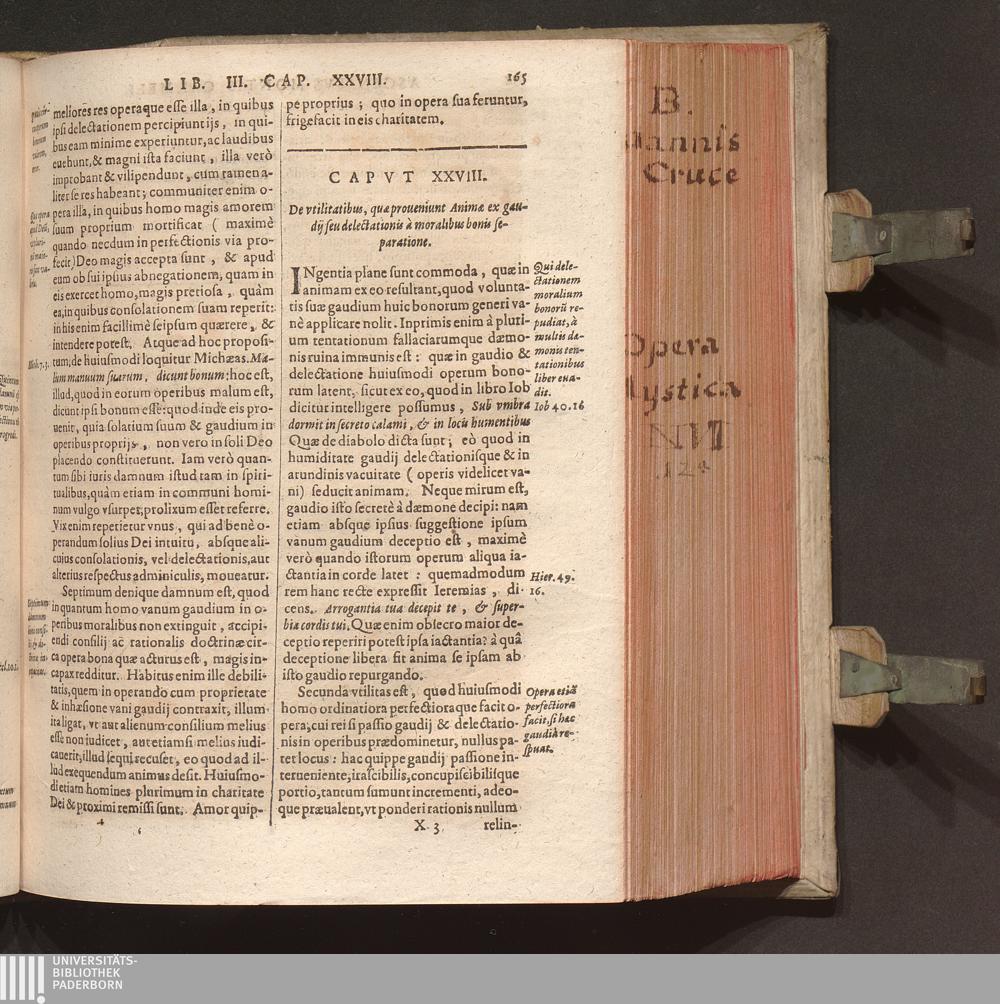 LIB. III. CAP. XXVIII. 165
meliores res operaque esse illa, in quibus
ipsi delectationem percipiunt ijs, in qui-
bus eam minime experiuntur, ac laudibus
euehunt, & magni ista faciunt, illa verò
improbant & vilipendunt, cùm tamen a-
liter se res habeant; communiter enim o-
pera illa, in quibus homo magis amorem
suum proprium mortificat (maximè
quando necdum in perfectionis via pro-
fecit) Deo magis accepta sunt, & apud
eum ob sui ipsius abnegationem, quam in
eis exercet homo, magis pretiosa, quàm
ea, in quibus consolationem suam reperit:
in his enim facillimè seipsum quærere, &
intendere potest. Atque ad hoc proposi-
tum; de huiusmodi loquitur Michæas. Ma-
lum manuum suarum, dicunt bonum; hoc est,
illud, quod in eorum operibus malum est,
dicunt ipsi bonum esse: quod inde eis pro-
uenit, quia solatium suum & gaudium in
operibus proprijs, non vero in soli Deo
placendo constituerunt. Iam verò quan-
tum sibi iuris damnum istud tam in spiri-
tualibus, quàm etiam in communi homi-
num vulgo vsurpet, prolixum esset referre.
Vix enim reperietur vnus, qui ad benè o-
perandum solius Dei intuitu, absque ali-
cuius consolationis, vel delectationis, aut
alterius respectus adminiculis, moueatur.
Septimum denique damnum est, quod
in quantum homo vanum gaudium in o-
peribus moralibus non extinguit, accipi-
endi consilij ac rationalis doctrinæ cir-
ca opera bona quæ acturus est, magis in-
capax redditur. Habitus enim ille debili-
tatis, quem in operando cum proprietate
& inhæsione vani gaudij contraxit, illum
ita ligat, vt aut alienum consilium melius
esse non iudicet, aut etiamsi melius iudi-
cauerit, illud sequi recuset, eo quod ad il-
lud exequendum animus desit. Huiusmo-
di etiam homines plurimum in charitate
Dei & proximi remissi sunt. Amor quip-
Mich. 7. 3.
pe proprius; quo in opera sua feruntur,
frigefacit in eis charitatem.
CAPVT XXVIII.
De vtilitatibus, quæ proueniunt Animæ ex gau-
dij seu delectationis à moralibus bonis se-
paratione.
INgentia plane sunt commoda, quæ in
animam ex eo resultant, quod volunta-
tis suæ gaudium huic bonorum generi va-
nè applicare nolit. Inprimis enim à pluri-
um tentationum fallaciarumque dæmo-
nis ruina immunis est: quæ in gaudio &
delectatione huiusmodi operum bono-
rum latent, sicut ex eo, quod in libro Iob
dicitur intelligere possumus, Sub vmbra
dormit in secreto calami, & in locis humentibus
Quæ de diabolo dicta sunt; eò quod in
humiditate gaudij delectationisque & in
arundinis vacuitate (operis videlicet va-
ni) seducit animam. Neque mirum est,
gaudio isto secretè à dæmone decipi: nam
etiam absque ipsius suggestione ipsum
vanum gaudium deceptio est, maximè
verò quando istorum operum aliqua ia-
ctantia in corde latet: quemadmodum
rem hanc recte expressit Ieremias, di-
cens. Arrogantia tua decepit te, & super-
bia cordis tui. Quæ enim obsecro maior de-
ceptio reperiri potest ipsa iactantia? à quâ
deceptione libera fit anima se ipsam ab
isto gaudio repurgando.
Secunda vtilitas est, quod huiusmodi
homo ordinatiora perfectioraque facit o-
pera; cui rei si passio gaudij & delectatio-
nis in operibus prædominetur, nullus pa-
tet locus: hac quippe gaudij passione in-
terueniente, irascibilis, concupiscibilisque
portio, tantum sumunt incrementi, adeo-
que præualent, vt ponderi rationis nullum
X 3 relin-
Qui dele-
ctationem
moralium
bonorū re-
pudiat, à
multis dæ-
monis ten-
tationibus
liber eua-
dit.
Iob 40. 16
Hier. 49.
16.
Opera etiā
perfectiora
facit, si hac
gaudia re-
spuat.
B.
annis
Cruce
Opera
ystica
UNIVERSITÄTS-
BIBLIOTHEK
PADERBORN